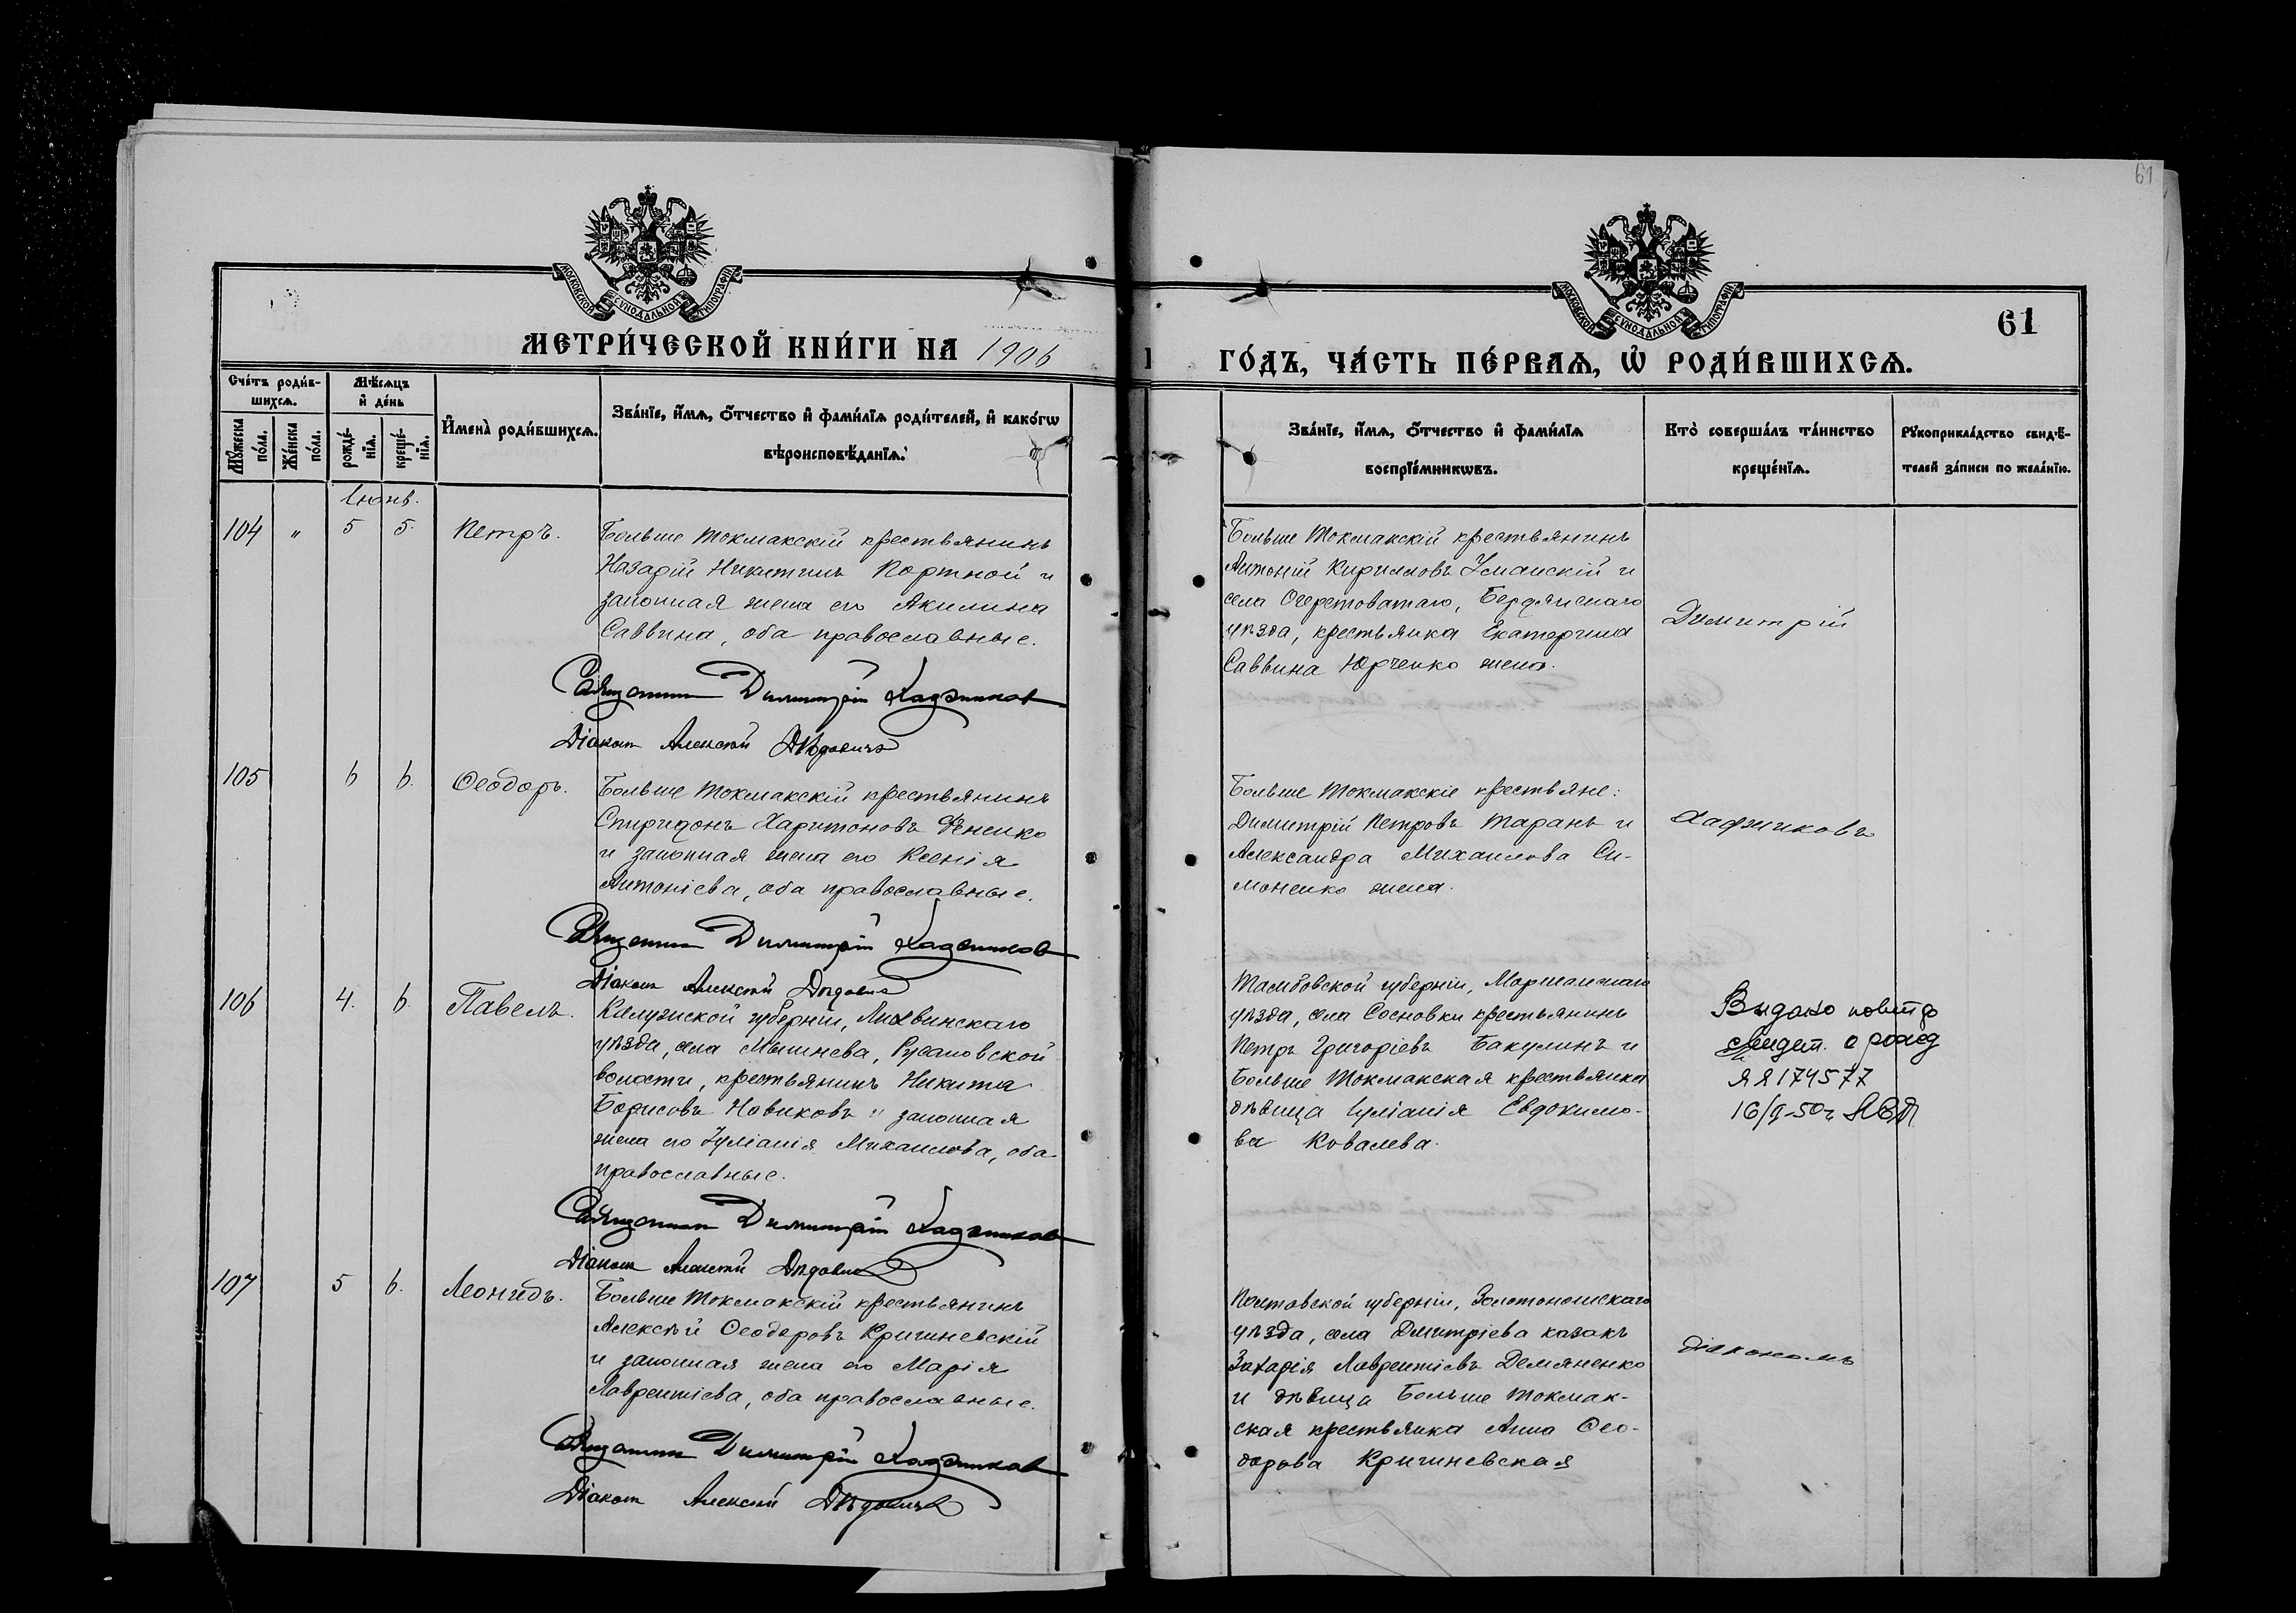 61
МОСКОВСКОЙ СѴНОДАЛЬНОЙ ТИПОГРАФІИ
МОСКОВСКОЙ СѴНОДАЛЬНОЙ ТИПОГРАФІИ
61
МЕТРИ́ЧЕСКОЙ КНИ́ГИ НА 1906
ГО́ДЪ, ЧА́СТЬ ПЕ́РВАѦ, Ѡ҆ РОДИ́ВШИХСѦ.
Сче́тъ роди́в-
шихсѧ.
Мꙋ́жеска по́ла.
Же́нска по́ла.
Мѣ́сѧцъ
и҆ де́нь
рожде́-нїѧ.
креще́-нїѧ.
И҆мена̀ роди́вшихсѧ.
Зва́нїе, и҆́мѧ, ѻ҆́тчество и҆ фами́лїѧ роди́телей, и҆ како́гѡ
вѣроисповѣ́данїѧ.
Зва́нїе, и҆́мѧ, ѻ҆́тчество и҆ фами́лїѧ
воспрїе́мникѡвъ.
Кто̀ соверша́лъ та́инство
креще́нїѧ.
Рꙋкоприкла́дство свидѣ́-
телей за́писи по жела́нїю.
104 " 5 5. Петръ.
Больше Токмакскій крестьянинъ
Назарій Никитинъ Портной и
законная жена его Акилина
Саввина, оба православные.
Священник Димитрій Хаджинов
Діакон Алексѣй Дѣдовичъ
Больше Токмакскій крестьянинъ
Антоній Кирилловъ Уманскій и
села Очеретоватаго, Бердянскаго
уѣзда, крестьянка Екатерина
Саввина Юрченко жена.
Димитрій
105 6 6. Ѳеодоръ.
Больше Токмакскій крестьянинъ
Спиридонъ Харитоновъ
и законная жена его Ксенія
Антоніева, оба православные.
Священник Димитрій Хаджинов
Діакон Алексѣй Дѣдовичъ
Больше Токмакскіе крестьяне:
Димитрій Петровъ Таранъ и
Александра Михаилова Си-
моненко жена.
106 4. 6. Павелъ.
Калужской губерніи, Лихвинскаго
уѣзда, села Мышнева, Русановской
волости, крестьянинъ Никита
Борисовъ Новиковъ и законная
жена его Іуліанія Михаилова, оба
православные.
Священник Димитрій Хаджинов
Діакон Алексѣй Дѣдовичъ
Тамбовской губерніи, Моршанскаго
уѣзда, села Сосновки крестьянинъ
Петръ Григоріевъ Бакулинъ и
Больше Токмакская крестьянка
дѣвица Іуліанія Евдокимо-
ва Ковалева.
Видано повт
свидет. о рожд
ЯЯ 174577
107 5 6. Леонидъ.
Больше Токмакскій крестьянинъ
Алексѣй Ѳеодоровъ Кришневскій
и законная жена его Марія
Лаврентіева, оба православные.
Священник Димитрій Хаджинов
Діакон Алексѣй Дѣдовичъ
Полтавской губерніи, Золотоношскаго
уѣзда, села Дмитріева казакъ
Захарія Лаврентіевъ Демяненко
и дѣвица Больше Токмак-
ская крестьянка Анна Ѳео-
дорова Кришневская
діакономъ